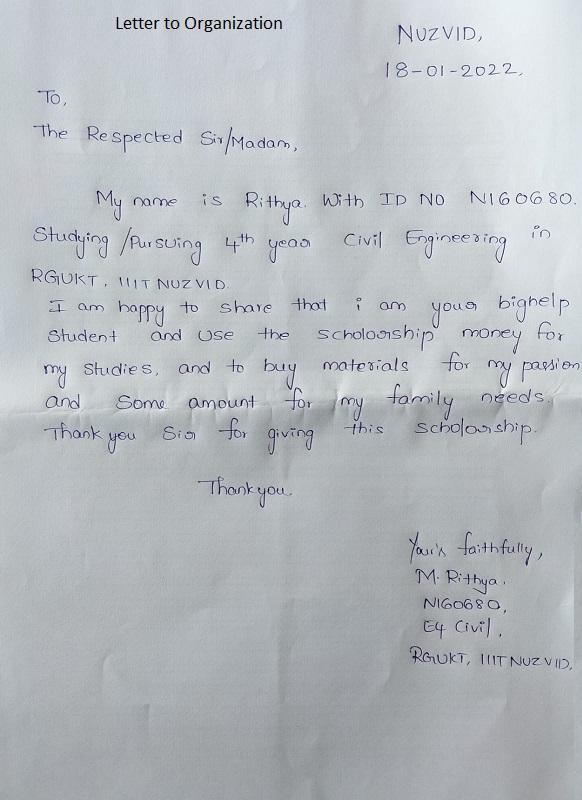 Letter to Organization
NUZVID,
18-01-2022,
To,
The Respected Sir/Madam,
My name is Rithya. With ID NO N160680.
Studying/Pursuing 4th year Civil Engineering in
RGUKT, IIIT NUZVID.
I am happy to share that i am your bighelp
Student and use the scholarship money for
my studies, and to buy materials for my passion
and Some amount for my family needs.
Thank you Sir for giving this scholarship.
Thank you.
Your's faithfully,
M. Rithya.
N160680,
E4 Civil,
RGUKT, IIIT NUZVID.